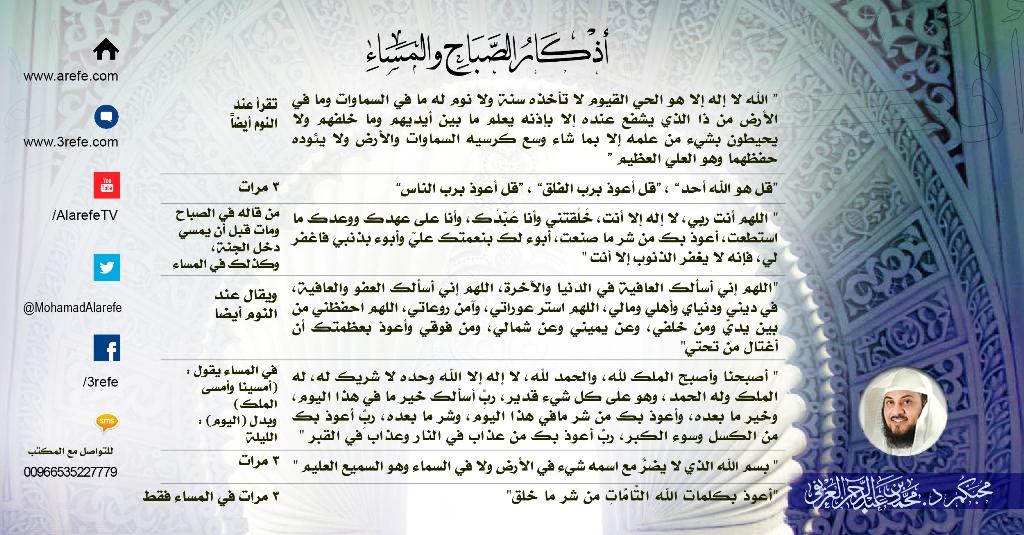 أذكار الصَّبَاحِ والمَسَاءِ
" الله لا إله إلا هو الحي القيوم لا تأخذه سنة ولا نوم له ما في السماوات وما في
الأرض من ذا الذي يشفع عنده إلا بإذنه يعلم ما بين أيديهم وما خلفهم ولا
يحيطون بشيء من علمه إلا بما شاء وسع كرسيه السماوات والأرض ولا يئوده
حفظهما وهو العلي العظيم "
تقرأ عند
النوم أيضاً
"قل هو الله أحد" ، "قل أعوذ برب الفلق" ، "قل أعوذ برب الناس"
٣ مرات
" اللهم أنت ربي، لا إله إلا أنت، خَلَقتَني وأنا عَبْدُك، وأنا على عهدك ووعدك ما
استطعت، أعوذ بك من شر ما صنعت، أبوء لك بنعمتك عليَ وأبوء بذنبي فاغفر
لي، فإنه لا يغفر الذنوب إلا أنت "
من قاله في الصباح
ومات قبل أن يمسي
دخل الجنة،
وكذلك في المساء
"اللهم إني أسألك العافية في الدنيا والآخرة، اللهم إني أسألك العفو والعافية،
في ديني ودنياي وأهلي ومالي، اللهم استر عوراتي، وآمن روعاتي، اللهم احفظني من
بين يديَ ومن خلفي، وعن يميني وعن شمالي، ومن فوقي وأعوذ بعظمتك أن
أغتال من تحتي"
ويقال عند
النوم أيضا
" أصبحنا وأصبح الملك لله، والحمد لله، لا إله إلا الله وحده لا شريك له، له
الملك وله الحمد ، وهو على كل شيء قدير، ربّ أسألك خير ما في هذا اليوم،
وخير ما بعده، وأعوذ بك من شر مافي هذا اليوم، وشر ما بعده، ربّ أعوذ بك
من الكسل وسوء الكبر، ربّ أعوذ بك من عذاب في النار وعذاب في القبر "
في المساء يقول :
(أمسينا وأمسى
الملك)
وبدل (اليوم) :
الليلة
" بسم الله الذي لا يضرُّ مع اسمه شيء في الأرض ولا في السماء وهو السميع العليم "
٣ مرات
"أعوذ بكلمات الله التَّامَّاتِ من شر ما خلق"
٣ مرات في المساء فقط
www.arefe.com
www.3refe.com
You Tube
/AlarefeTV
@MohamadAlarefe
/3refe
sms
للتواصل مع المكتب
00966535227779
محبكم د. محمد بن عبدالرحمن العريفي